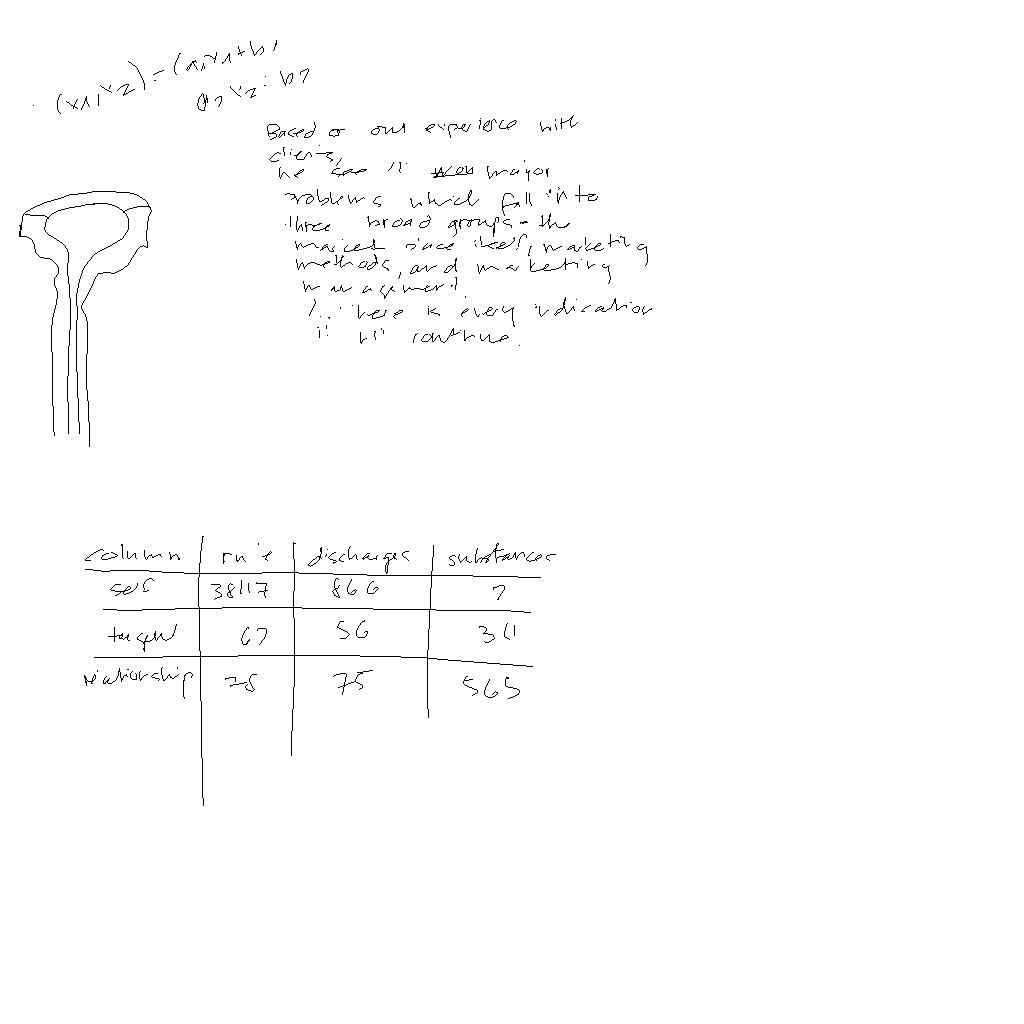 (x1, x2) = (a1x1 + b1
a2x2 + b2
Based on our experience with
clients,
we see 11 major
problems which fall into
three broad groups - the
market place itself, marketing
methods, and marketing
management.
there is every indication
it will continue.
column discharges substances
self 866 7
target 67 56
relationship 28 75 565